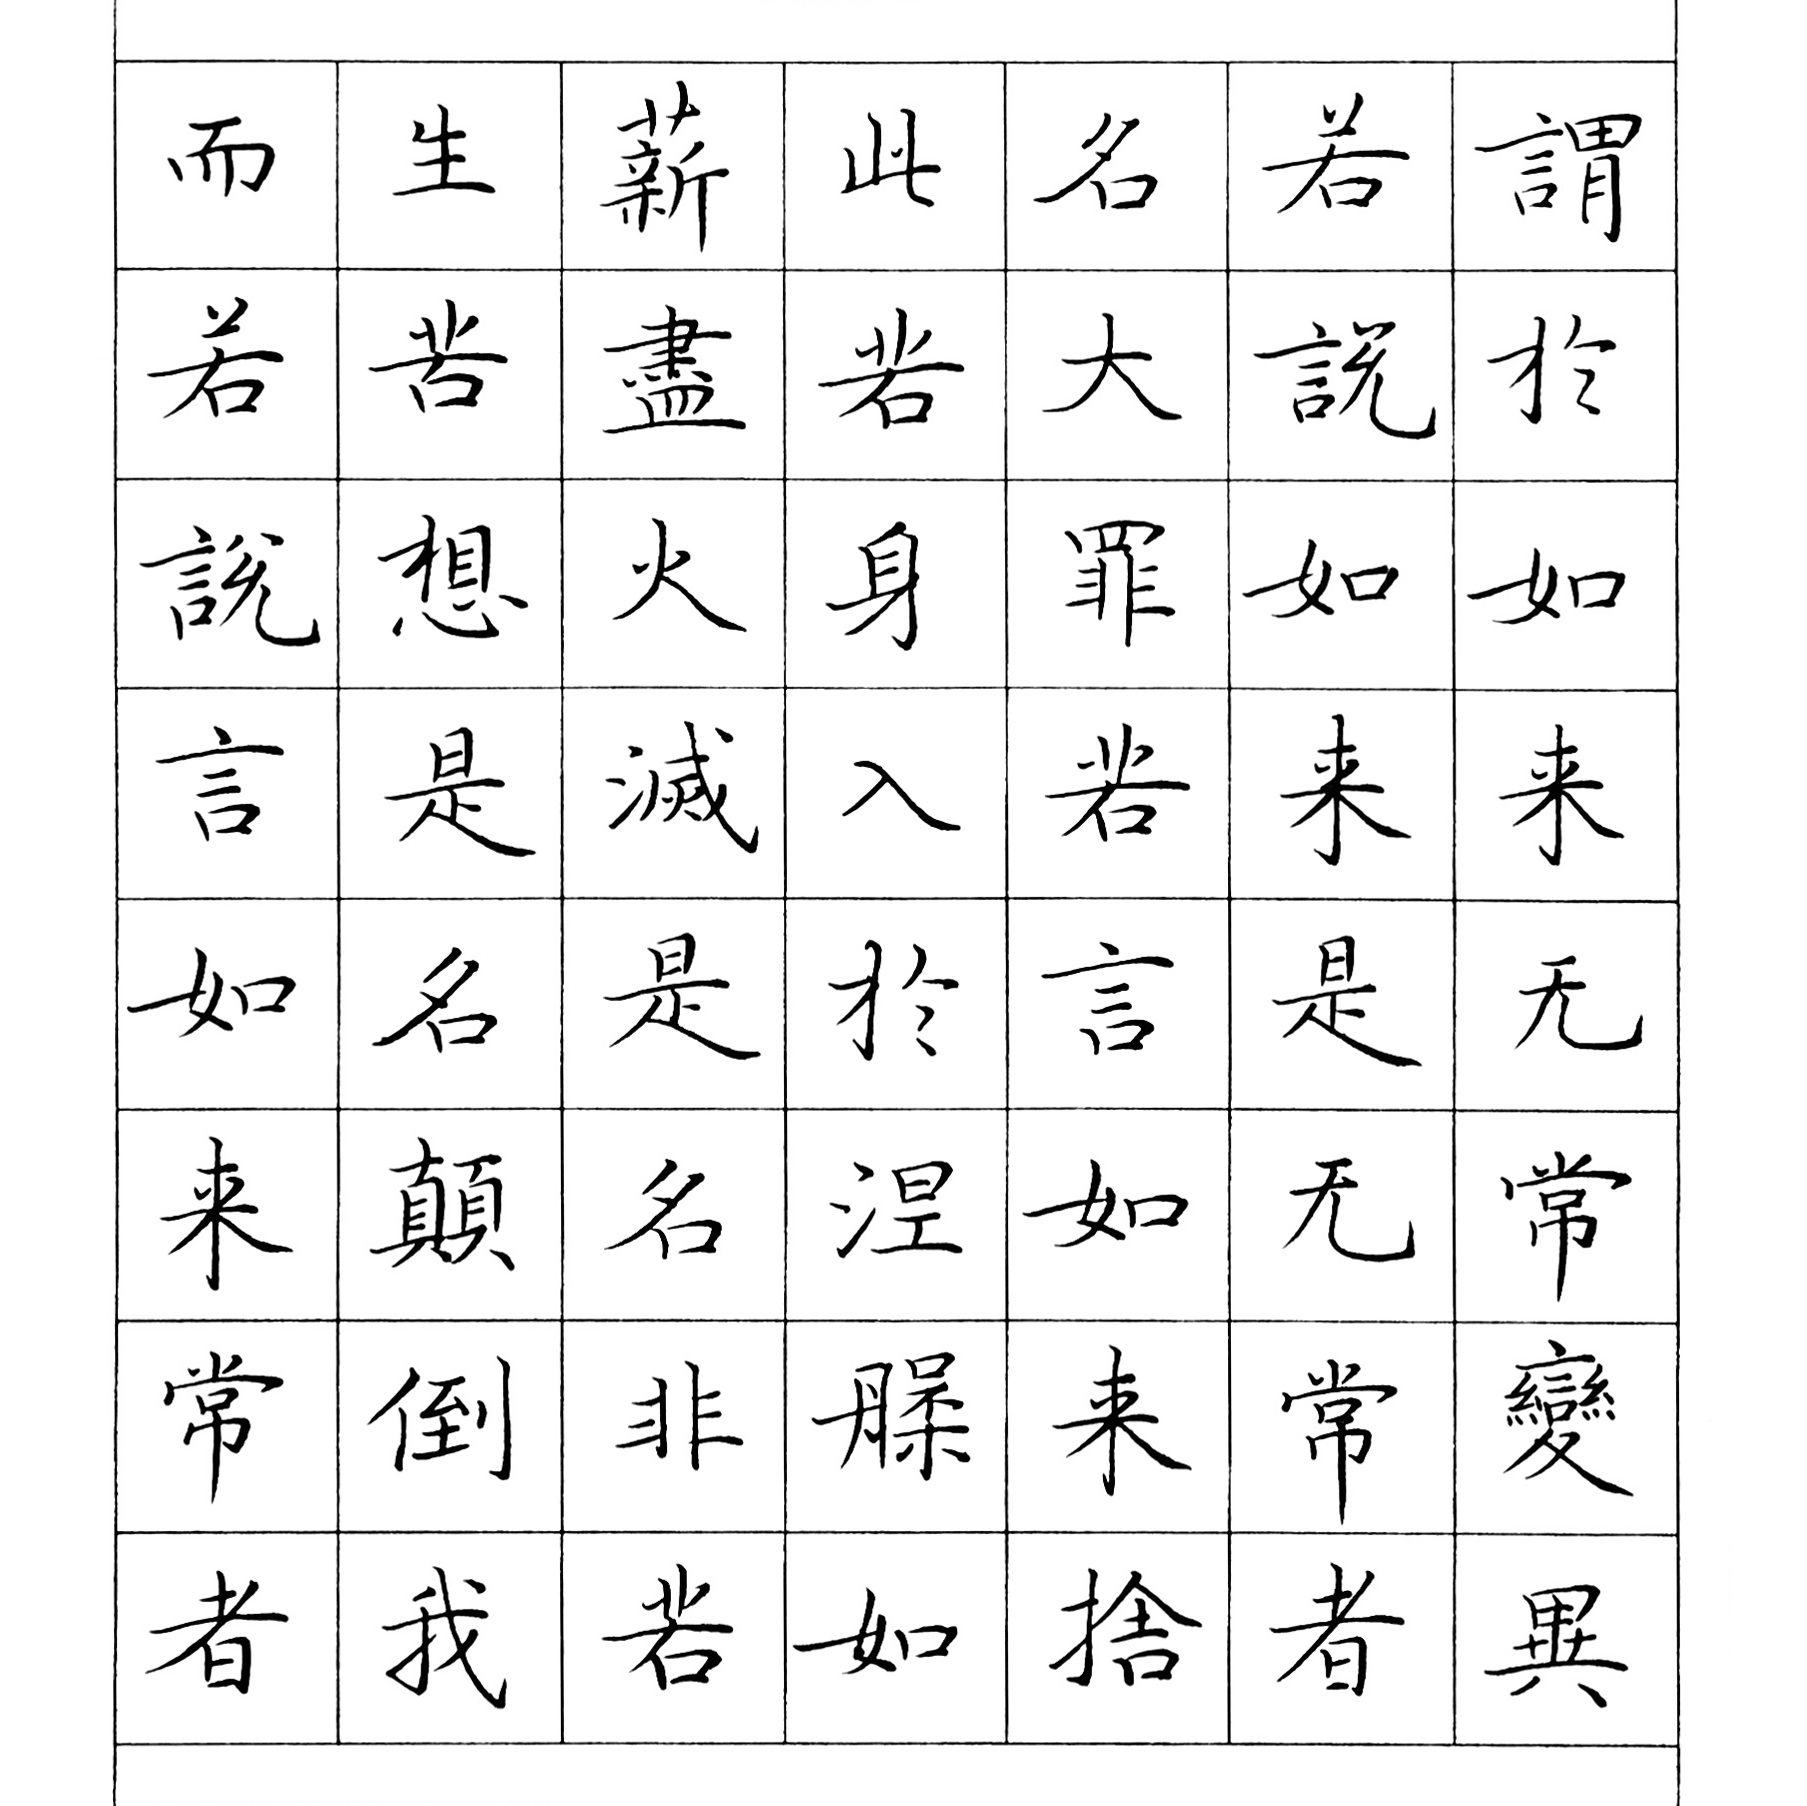 謂於如来无常變異
若說如来是无常者
名大罪若言如来捨
此若身入於涅槃如
薪盡火滅是名非若
生苦想是名顛倒我
而若說言如来常者